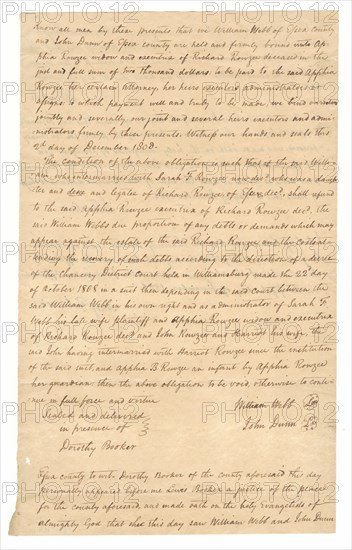 Know all men by these presents that we William Webb of Essex County
and John Dunn of Essex county are held and firmly bound unto Ap-
phia Rowzee widow and executrix of Richard Rowzee deceased in the
just and full sum of two thousand dollars, to be paid to the said Apphia
Rowzee her certain attorney her heirs executors administrators or
assigns to which payment well and truly to be made, we bind ourselves
jointly and severally our joint and several heirs executors and admin-
istrators firmly by these presents. Witness our hands and seals this
day of December 1808.
The condition of the above obligation is such that if the said Willi-
am, who intermarried with Sarah F. Rowzee now decd who was a daugh-
ter and legatee of Richard Rowzee of decd, shall refund
to the said Apphia Rowzee executrix of Richard Rowzee decd, the
said William Webbs due proportion of any debts or demands which may
appear against the estate of the said Richard Rowzee and the costs at-
tending the recovery of such debts according to the direction of a decree
of the Chancery District court held in Williamsburg made the 22d day
of October 1808 in a suit then depending in the said court between the
said William Webb in his own right and as administrator of Sarah F.
Webb his late wife plaintiff and Apphia Rowzee widow and executrix
of Richard Rowzee decd and John Rowzee and Harriot his wife the
said John having intermarried with Harriot Rowzee since the institution
of the said suit, and Apphia B Rowzee an infant by Apphia Rowzee
her guardian then the above obligation to be void, otherwise to contin-
ue in full force and virtue
Sealed and delivered
in presence of
Dorothy Booker
William Webb
John Dunn
Essex county to wit, Dorothy Booker of the county aforesaid this day
personally appeared before me Lewis Booker a justice of the peace
for the county aforesaid, and made oath on the holy Evangelists of
almighty God that she this day saw William Webb and John Dunn